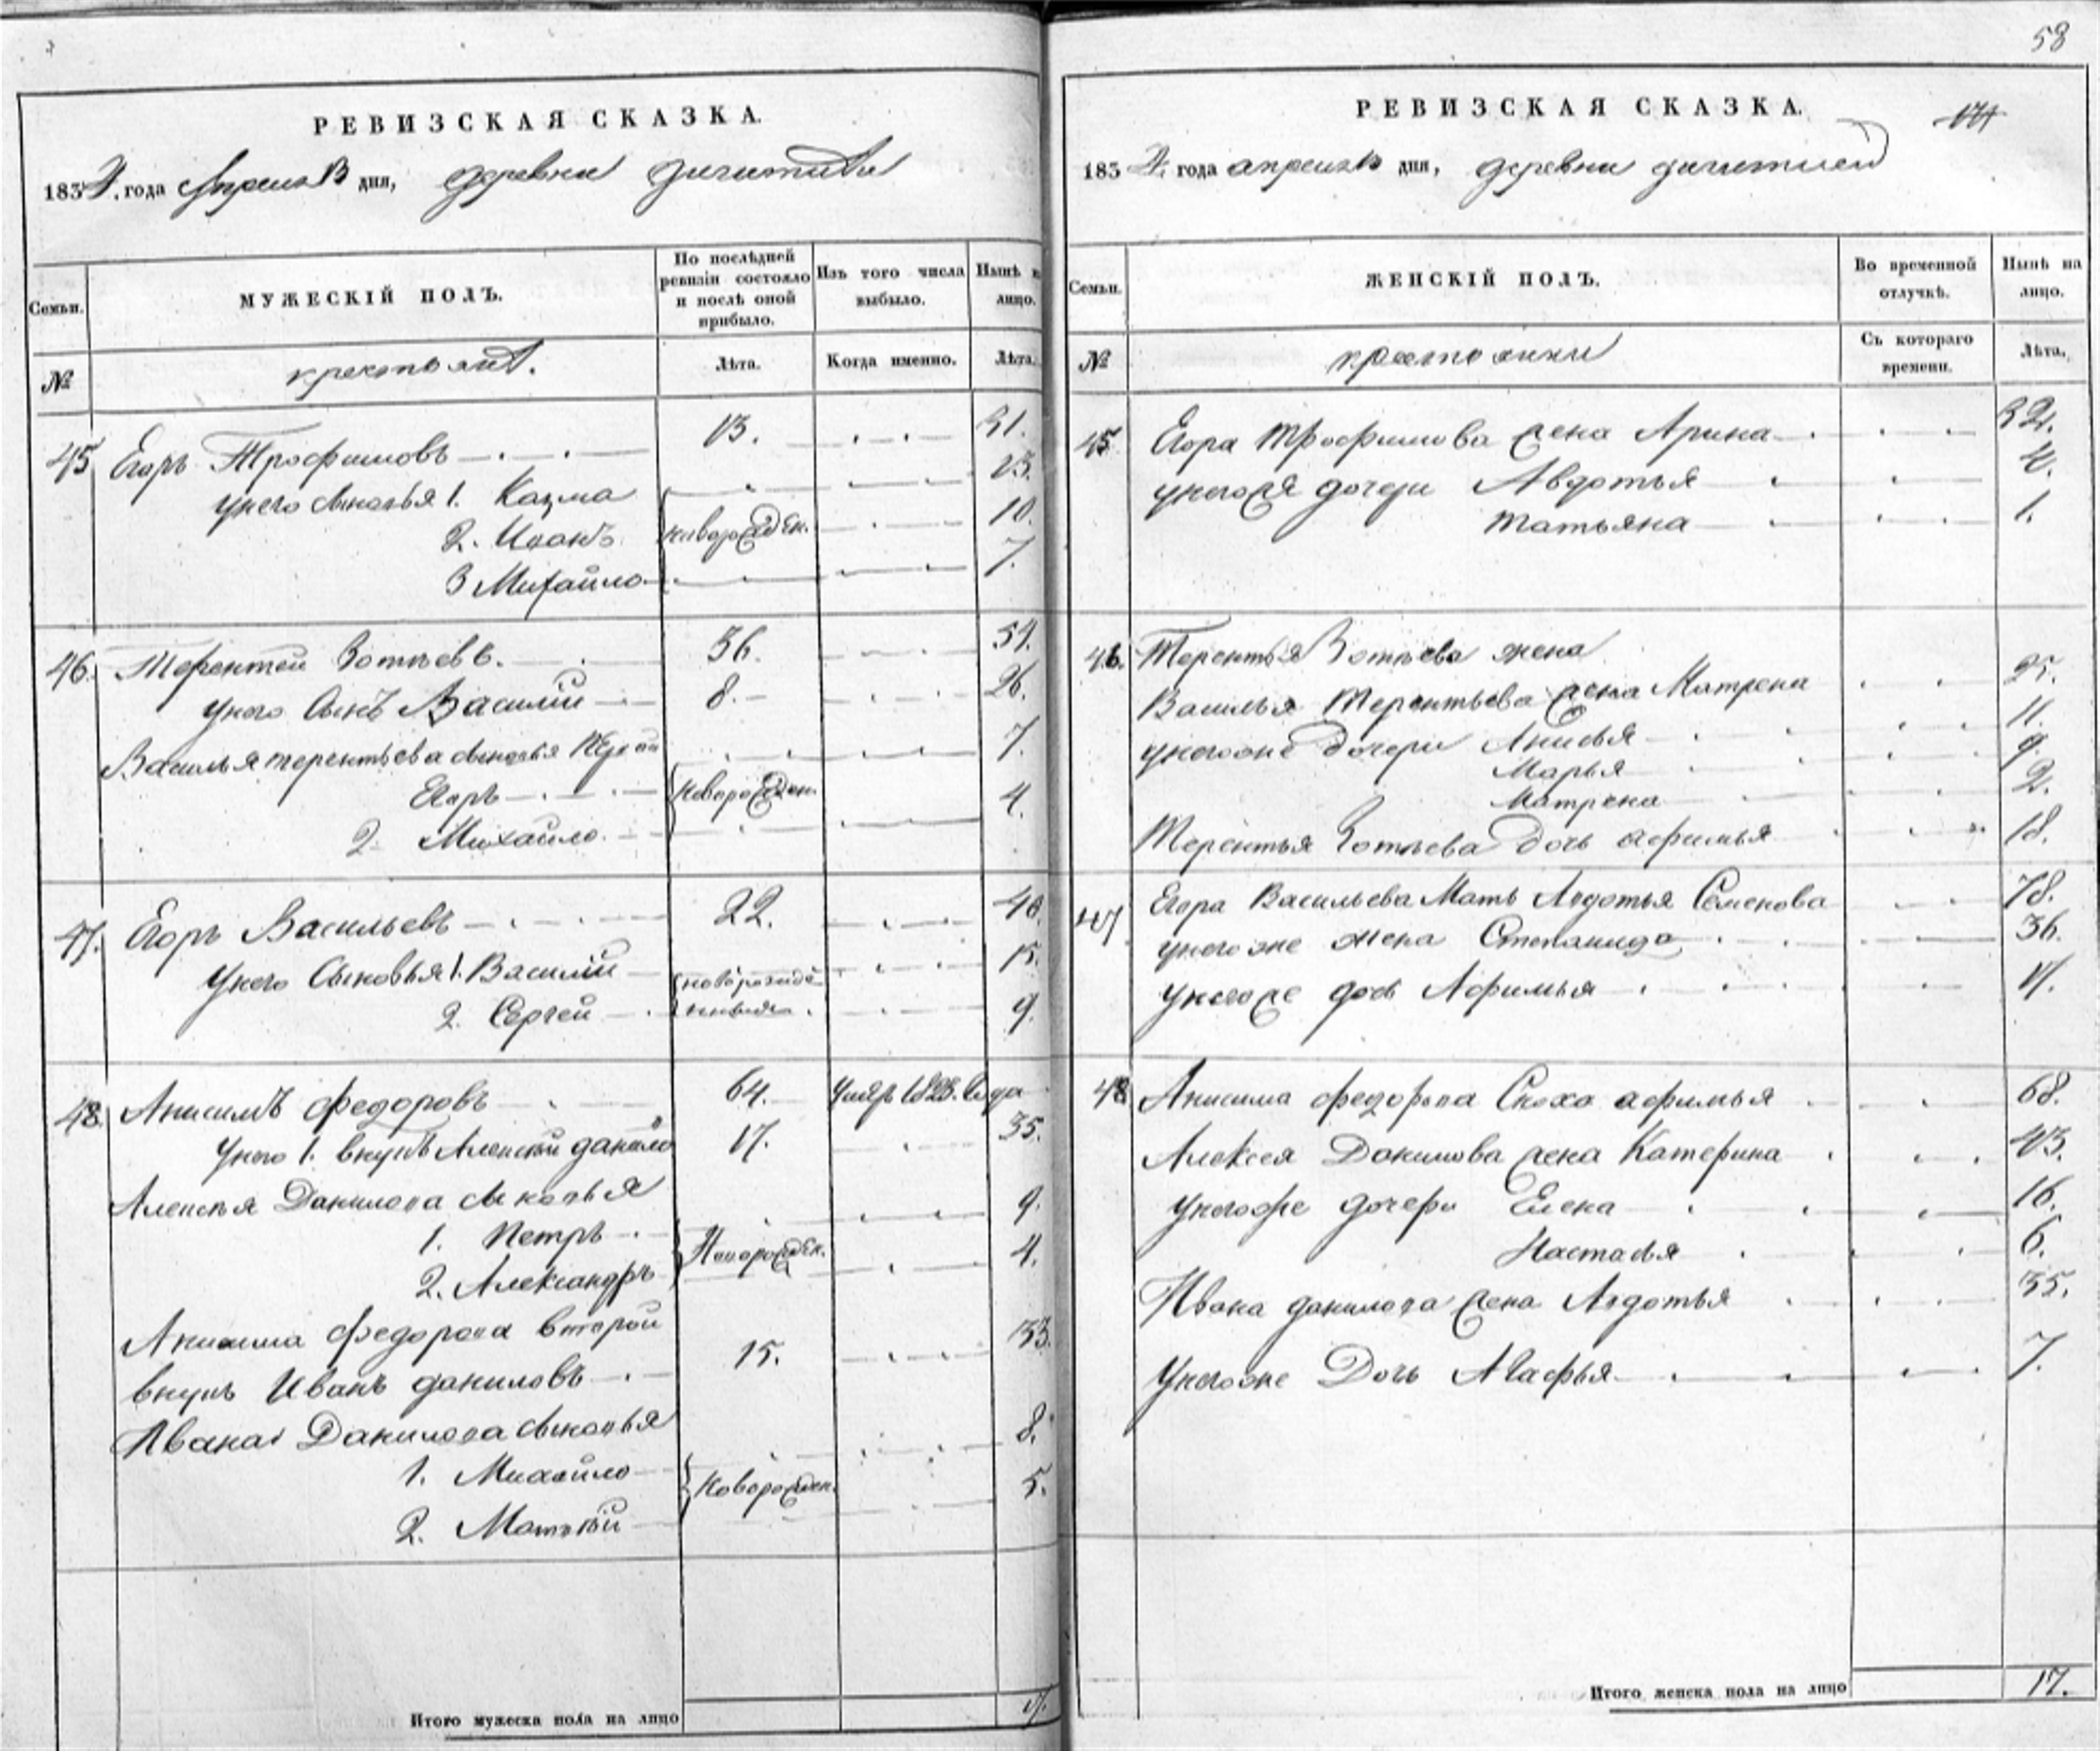 58
РЕВИЗСКАЯ СКАЗКА.
1834. года Апреля 13 дня, деревни
Семьи.
МУЖЕСКІЙ ПОЛЪ.
По послѣдней ревизіи состояло и послѣ оной прибыло.
Изъ того числа выбыло.
Нынѣ на лицо.
№
крестьянъ.
Лѣта.
Когда именно.
Лѣта.
45 Егоръ Трофимовъ 13. 31.
у него сыновья 1. Казма 13.
2. Иванъ новорожден. 10.
3 Михайло 7.
46. Терентей Зотѣевъ. 36. 54.
у него сынъ Василій 8. 26.
Василья терентьева сыновья
Егоръ новорожден. 7.
2. Михайло 4.
47. Егоръ Васильевъ 22. 40.
у него Сыновья 1. Василій новорожде 15.
2. Сергей нныя. 9.
48. Анисимъ Федоровъ 64. умер 1828. года
у него 1. внукъ Алексѣй данило 17. 35.
Алексѣя Данилова сыновья
1. Петръ Новорожден. 9.
2. Александръ 4.
Анисима Федорова второй
внукъ Иванъ даниловъ 15. 33.
Ивана Данилова сыновья
1. Михайло новорожден. 8.
2. Матвѣй 5.
Итого мужеска пола на лицо 17.
РЕВИЗСКАЯ СКАЗКА.
174
1834. года апреля 13 дня, деревни
Семьи.
ЖЕНСКІЙ ПОЛЪ.
Во временной отлучкѣ.
Нынѣ на лицо.
№
крестьянки
Съ котораго времени.
Лѣта.
45 Егора Трофимова жена Арина 32.
у него же дочери Авдотья 4.
Татьяна 1.
46. Терентья Зотѣева жена
Василья Терентьева жена Матрена 25.
у него же дочери Анисья 11.
Марья 9.
Матрена 2.
Терентья Зотѣева дочь афимья 18.
47 Егора Васильева Мать Авдотья Семенова 78.
у него же жена Степанида 36.
у него же дочь Афимья 17.
48 Анисима Федорова Сноха афимья 68.
Алексея Данилова жена Катерина 43.
у него же дочери Елена 16.
Настасья 6.
Ивана данилова жена Авдотья 35.
у него же Дочь Агафья 7.
Итого женска пола на лицо 17.